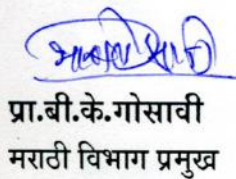 प्रा.बी.के.गोसावी
मराठी विभाग प्रमुख